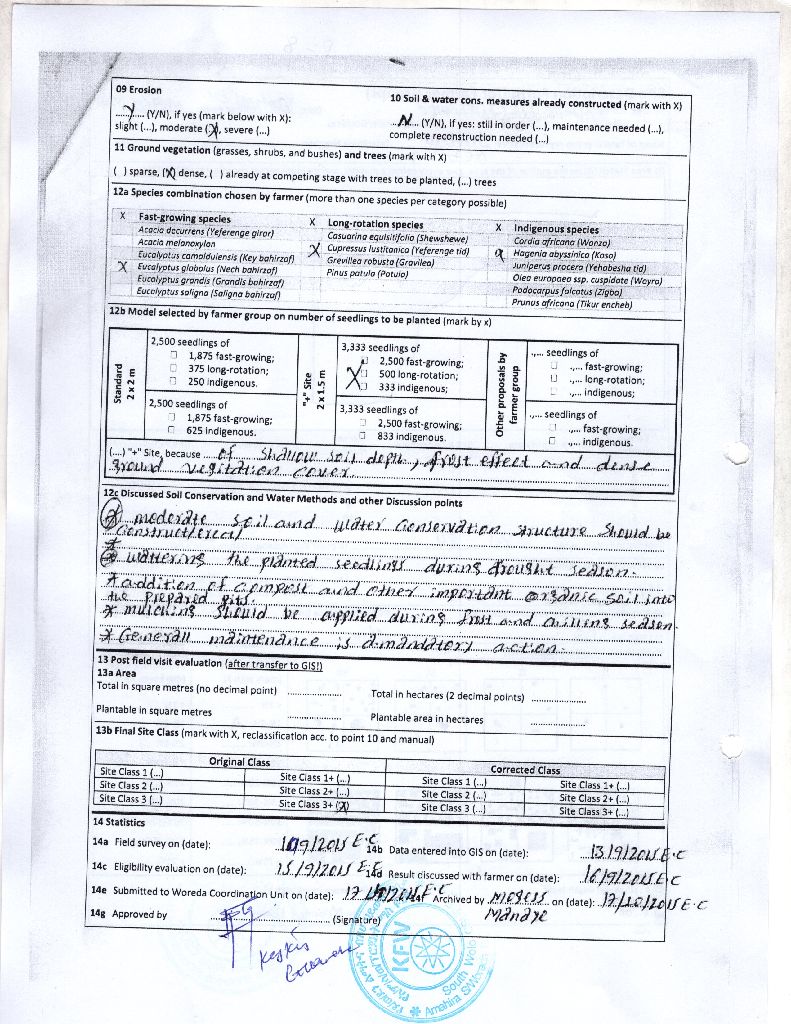 09 Erosion
10 Soil & water cons. measures already constructed (mark with X)
..Y.. (Y/N), if yes (mark below with X):
..N.. (Y/N), if yes: still in order (...), maintenance needed (...),
slight (...), moderate (X), severe (...)
complete reconstruction needed (...)
11 Ground vegetation (grasses, shrubs, and bushes) and trees (mark with X)
( ) sparse, (X) dense, ( ) already at competing stage with trees to be planted, (...) trees
12a Species combination chosen by farmer (more than one species per category possible)
X Fast-growing species
Acacia decurrens (Yeferenge girar)
Acacia melanoxylon
Eucalyptus camaldulensis (Key bahirzaf)
X Eucalyptus globolus (Nech bahirzaf)
Eucalyptus grandis (Grandis bahirzaf)
Eucalyptus saligna (Saligna bahirzaf)
X Long-rotation species
Casuarina equisitifolia (Shewshewe)
X Cupressus lustitanica (Yeferenge tid)
Grevillea robusta (Gravilea)
Pinus patula (Patula)
X Indigenous species
Cordia africana (Wanza)
X Hagenia abyssinica (Koso)
Juniperus procera (Yehabesha tid)
Olea europaea ssp. cuspidata (Wayra)
Podocarpus falcatus (Zigba)
Prunus africana (Tikur encheb)
12b Model selected by farmer group on number of seedlings to be planted (mark by x)
Standard
2 x 2 m
2,500 seedlings of
1,875 fast-growing;
375 long-rotation;
250 indigenous.
2,500 seedlings of
1,875 fast-growing;
625 indigenous.
"+" Site
2 x 1.5 m
3,333 seedlings of
2,500 fast-growing;
X 500 long-rotation;
333 indigenous;
3,333 seedlings of
2,500 fast-growing;
833 indigenous.
Other proposals by
farmer group
.,... seedlings of
.,... fast-growing;
.,... long-rotation;
.,... indigenous;
.,... seedlings of
.,... fast-growing;
.,... indigenous.
(....) "+" Site, because of shallow soil depth, frost effect and dense
ground vegitation cover
12c Discussed Soil Conservation and Water Methods and other Discussion points
* moderate soil and water conservation structure should be
construct(erect)
* wattering the planted seedlings during drought season.
* addition of compost and other important organic soil into
the prepared pits.
* mulching should be applied during frost and chilling season
* Generall maintenance is a mandatory action.
13 Post field visit evaluation (after transfer to GIS!)
13a Area
Total in square metres (no decimal point) ................
Total in hectares (2 decimal points) ................
Plantable in square metres ................
Plantable area in hectares ................
13b Final Site Class (mark with X, reclassification acc. to point 10 and manual)
Original Class
Corrected Class
Site Class 1 (...) Site Class 1+ (...) Site Class 1 (...) Site Class 1+ (...)
Site Class 2 (...) Site Class 2+ (...) Site Class 2 (...) Site Class 2+ (...)
Site Class 3 (...) Site Class 3+ (X) Site Class 3 (...) Site Class 3+ (...)
14 Statistics
14a Field survey on (date): 10/9/2015 E.C
14b Data entered into GIS on (date): 13/9/2015 E.C
14c Eligibility evaluation on (date): 15/9/2015 E.C
14d Result discussed with farmer on (date): 16/9/2015 E.C
14e Submitted to Woreda Coordination Unit on (date): E.C
14f Archived by on (date): 17/10/2015 E.C
14g Approved by ................ (Signature)
KFW
South Wollo
Amahira